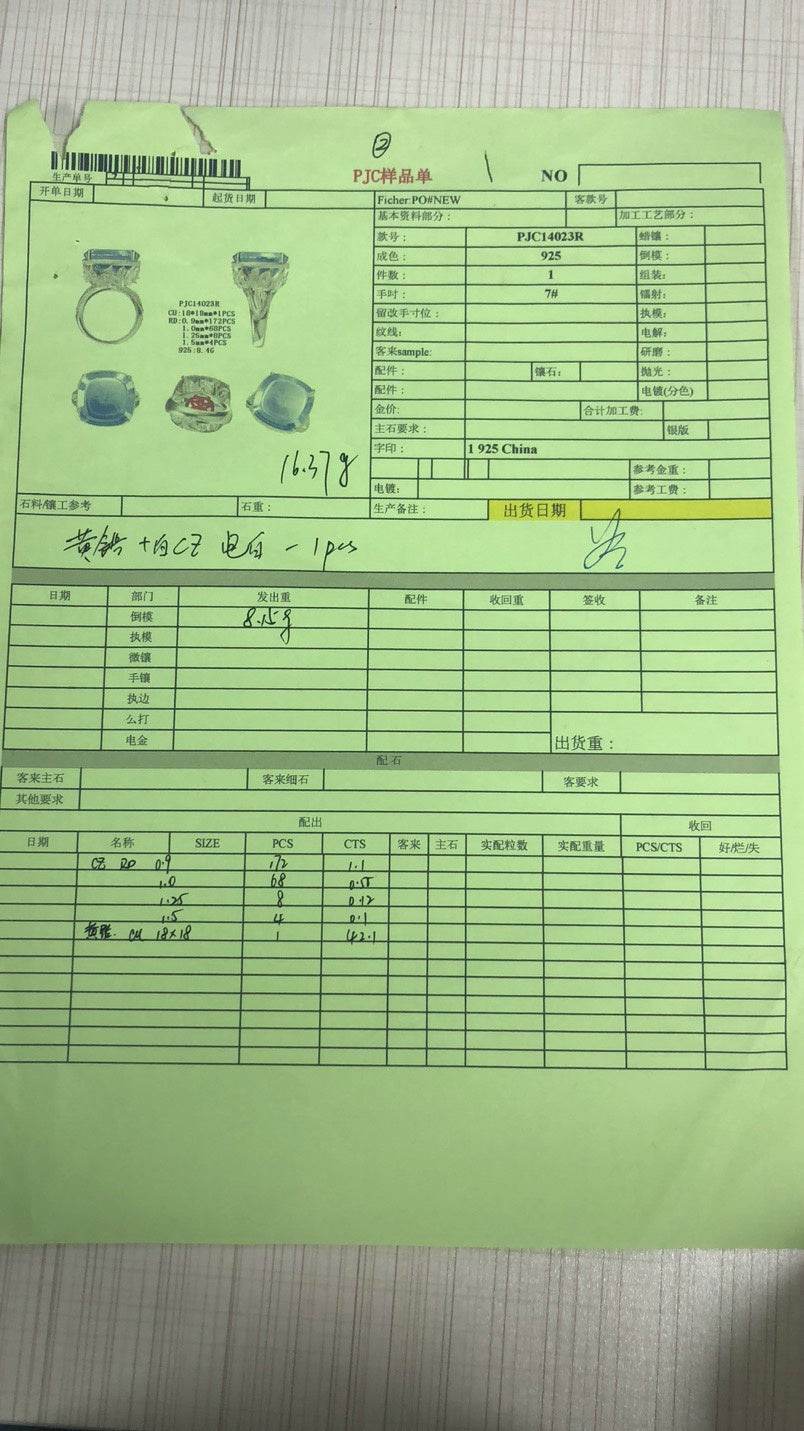 ②
PJC样品单 NO
生产单号
开单日期 起货日期 Ficher:PO#NEW 客款号
基本资料部分： 加工工艺部分：
款号： PJC14023R 蜡镶：
成色： 925 倒模：
件数： 1 组装：
手吋： 7# 镭射：
留改手寸位： 执模：
纹线： 电解：
客来sample: 研磨：
配件： 镶石： 抛光：
配件： 电镀(分色)
金价: 合计加工费:
主石要求： 银版
字印： 1 925 China
参考金重：
电镀： 参考工费：
PJC14023R
CU:18*18mm*1PCS
RD:0.9mm*172PCS
1.0mm*68PCS
1.25mm*8PCS
1.5mm*4PCS
925:8.4G
16.37g
石料/镶工参考 石重： 生产备注： 出货日期
黄锆+白CZ 电白 - 1pcs
日期 部门 发出重 配件 收回重 签收 备注
倒模 8.15g
执模
微镶
手镶
执边
么打
电金 出货重：
配石
客来主石 客来细石 客要求
其他要求
配出 收回
日期 名称 SIZE PCS CTS 客来 主石 实配粒数 实配重量 PCS/CTS 好/烂/失
CZ RD 0.9 172 1.1
1.0 68 0.55
1.25 8 0.12
1.5 4 0.1
CU 18×18 1 42.1